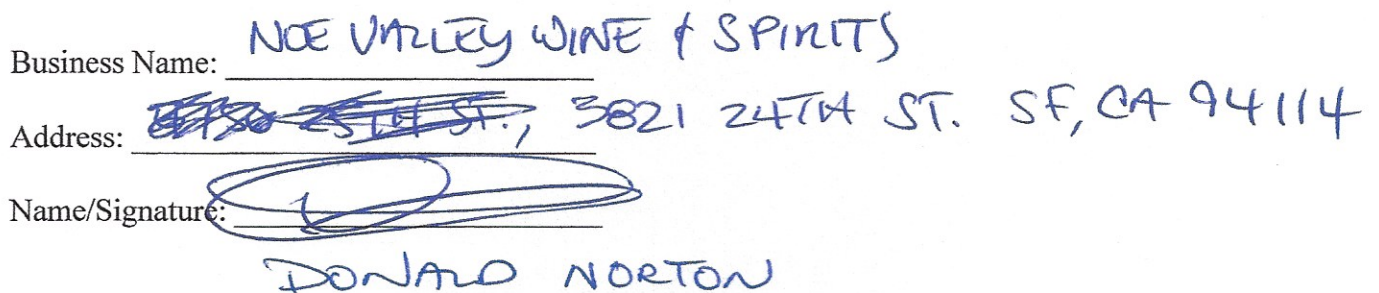 Business Name: NOE VALLEY WINE & SPIRITS
Address: 3821 24TH ST. SF, CA 94114
Name/Signature:
DONALD NORTON